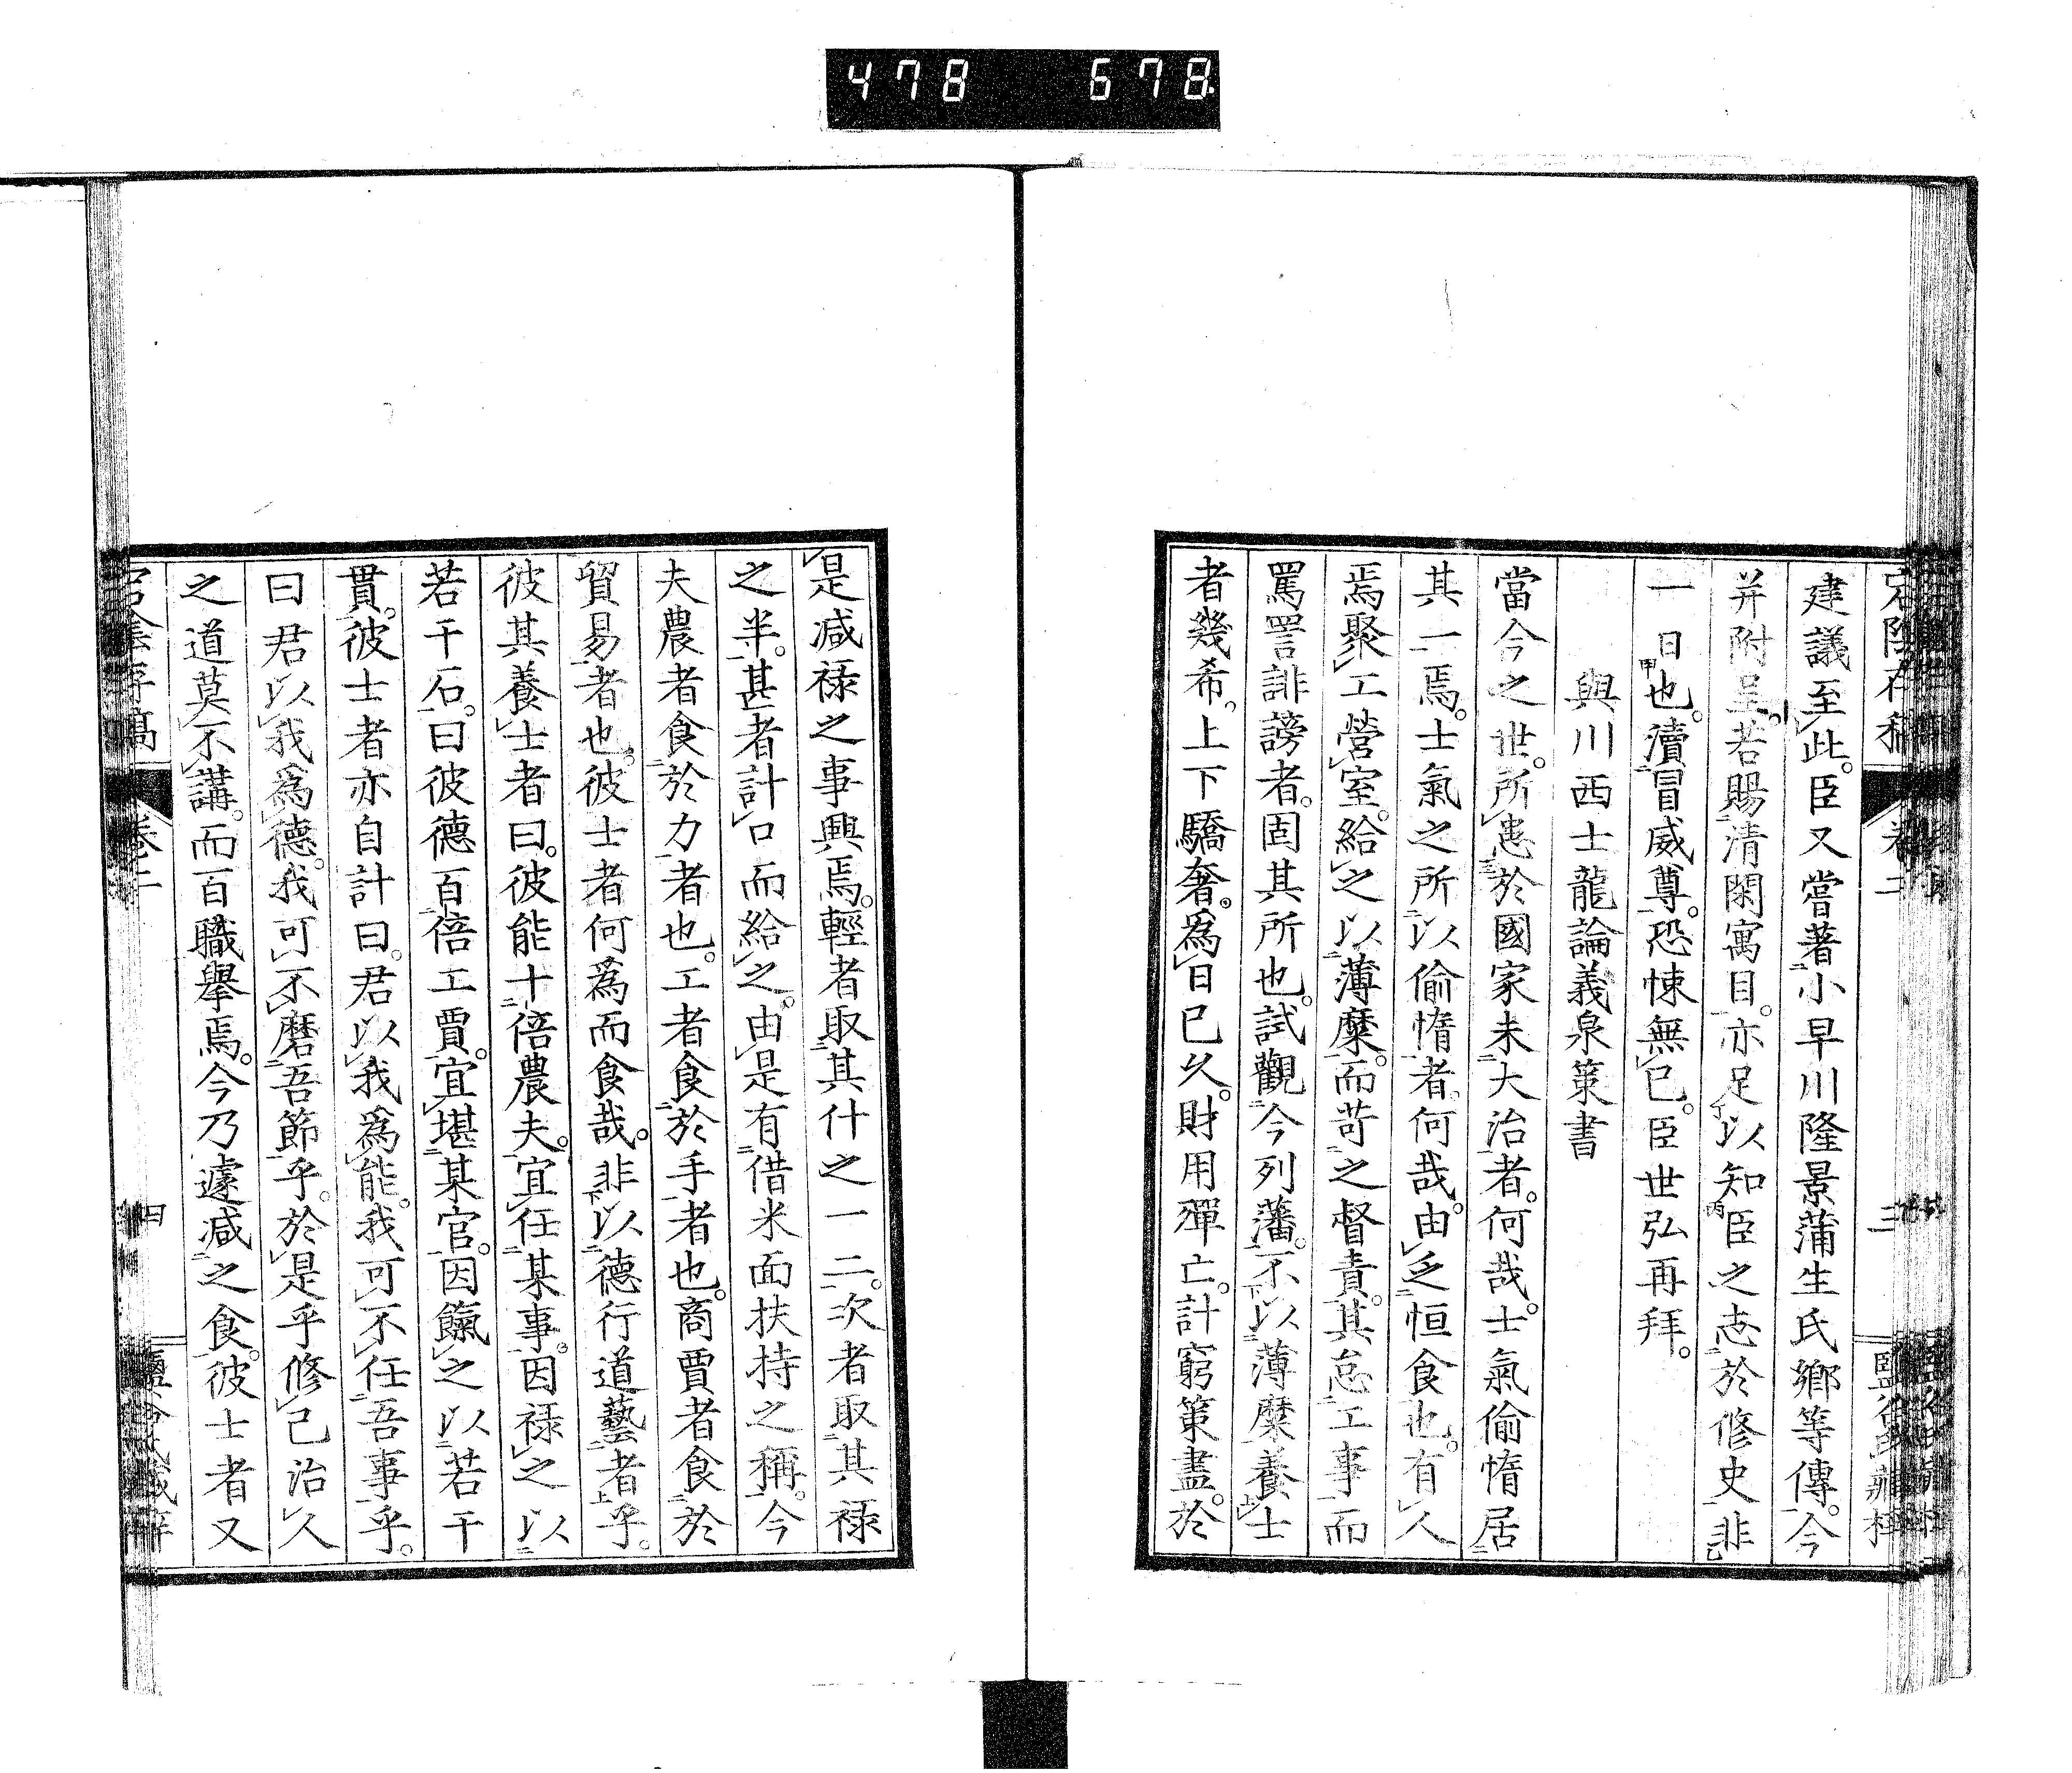 478 678
建議至此。臣又嘗著小早川隆景蒲生氏鄉等傳。今
并附呈。若賜清閑寓目。亦足以知臣之志於修史。非
一日也。瀆冒威尊。恐悚無已。臣世弘再拜。
與川西士龍論義泉策書
當今之世。所患於國家未大治者。何哉。士氣偷惰居
其一焉。士氣之所以偷惰者。何哉。由乏恒食也。有人
焉聚工營室。給之以薄糜。而苛之督責。其怠工事而
罵詈誹謗者。固其所也。試觀今列藩。不以薄糜養士
者幾希。上下驕奢。為日已久。財用殫亡。計窮策盡。於
是減祿之事興焉。輕者取其什之一二。次者取其祿
之半。甚者計口而給之。由是有借米面扶持之稱。今
夫農者食於力者也。工者食於手者也。商賈者食於
貿易者也。彼士者何為而食哉。非以德行道藝者乎。
彼其養士者曰。彼能十倍農夫。宜任某事。因祿之以
若干石。曰彼德百倍工賈。宜堪某官。因餼之以若干
貫。彼士者亦自計曰。君以我為能。我可不任吾事乎。
曰君以我為德。我可不磨吾節乎。於是乎修己治人
之道莫不講。而百職舉焉。今乃遽減之食。彼士者又
宕陰存稿 卷二 三
宕陰存稿 卷二 四